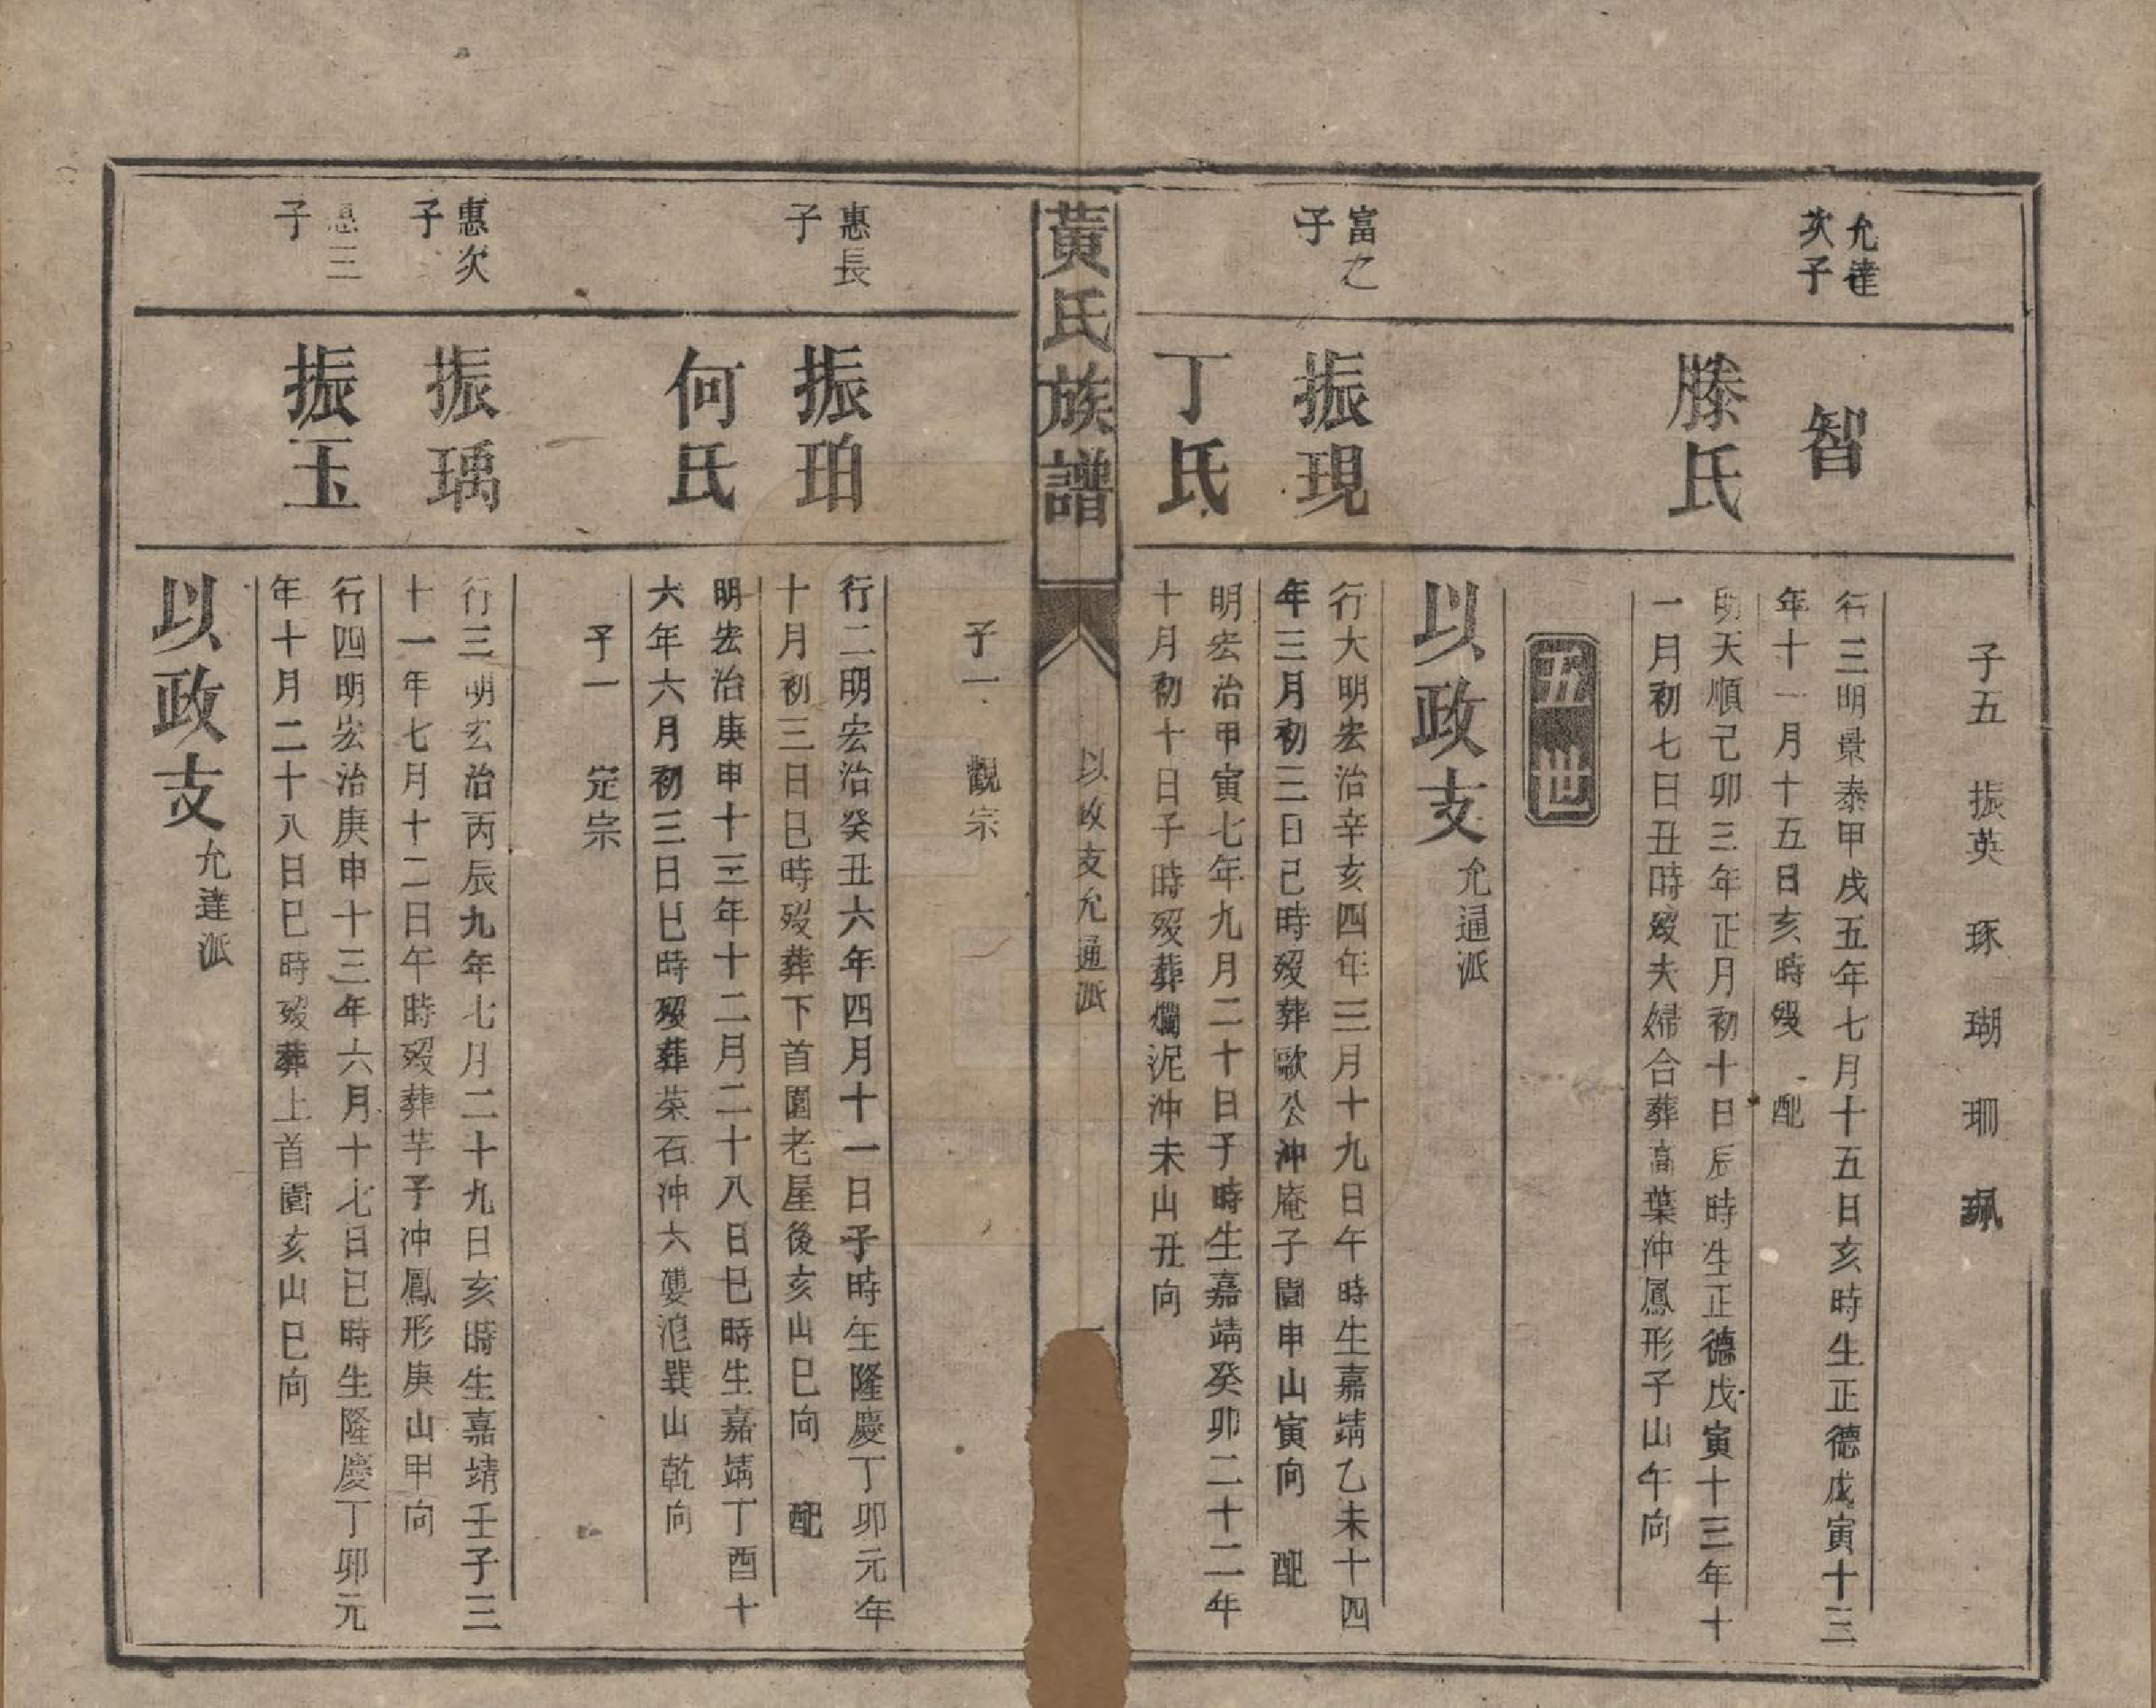 子五 振英 琢 瑚 珊 珮
允達
次子
智
行三明景泰甲戌五年七月十五日亥時生正德戊寅十三
年十一月十五日亥時歿 配
滕氏
明天順己卯三年正月初十日辰時生正德戊寅十三年十
一月初七日丑時歿夫婦合葬高葉沖鳳形子山午向
五世
以政支 允通派
富之
子
振現
行大明宏治辛亥四年三月十九日午時生嘉靖乙未十四
年三月初三日己時歿葬歌公沖庵子園申山寅向 配
丁氏
明宏治甲寅七年九月二十日子時生嘉靖癸卯二十二年
十月初十日子時歿葬爛泥沖未山丑向
黃氏族譜
以政支允通派
子一 觀宗
惠長
子
振珀
行二明宏治癸丑六年四月十一日子時生隆慶丁卯元年
十月初三日巳時歿葬下首園老屋後亥山巳向 配
何氏
明宏治庚申十三年十二月二十八日巳時生嘉靖丁酉十
六年六月初三日巳時歿葬菜石沖六婁𣲙巽山乾向
子一 定宗
惠次
子
振瑀
行三明宏治丙辰九年七月二十九日亥時生嘉靖壬子三
十一年七月十二日午時歿葬芋子沖鳳形庚山甲向
惠三
子
振玉
行四明宏治庚申十三年六月十七日巳時生隆慶丁卯元
年十月二十八日巳時歿葬上首園亥山巳向
以政支 允達派